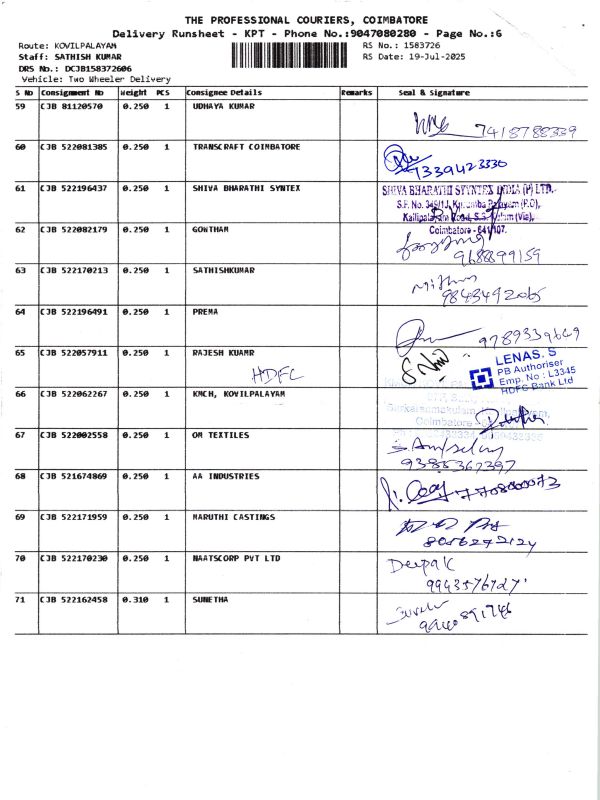 THE PROFESSIONAL COURIERS, COIMBATORE
Delivery Runsheet - KPT - Phone No.:9047080280 - Page No.:6
Route: KOVILPALAYAM RS No.: 1583726
Staff: SATHISH KUMAR RS Date: 19-Jul-2025
DRS No.: DCJB158372606
Vehicle: Two Wheeler Delivery
S No Consignment No Weight PCS Consignee Details Remarks Seal & Signature
59 CJB 81120570 0.250 1 UDHAYA KUMAR
7418788339
60 CJB 522081385 0.250 1 TRANSCRAFT COIMBATORE
7339423330
61 CJB 522196437 0.250 1 SHIVA BHARATHI SYNTEX
SHIVA BHARATHI SYNTEX INDIA (P) LTD.
Coimbatore - 641107.
62 CJB 522082179 0.250 1 GOWTHAM
9688899159
63 CJB 522170213 0.250 1 SATHISHKUMAR
Mithun
64 CJB 522196491 0.250 1 PREMA
9789339649
65 CJB 522057911 0.250 1 RAJESH KUAMR
HDFC
LENAS. S
PB Authoriser
Emp. No : L3345
HDFC Bank Ltd
66 CJB 522062267 0.250 1 KMCH, KOVILPALAYAM
67 CJB 522002558 0.250 1 OM TEXTILES
9385367397
68 CJB 521674869 0.250 1 AA INDUSTRIES
69 CJB 522171959 0.250 1 MARUTHI CASTINGS
8056292124
70 CJB 522170230 0.250 1 NAATSCORP PVT LTD
Deepak
9943576727
71 CJB 522162458 0.310 1 SUNETHA
9940891746